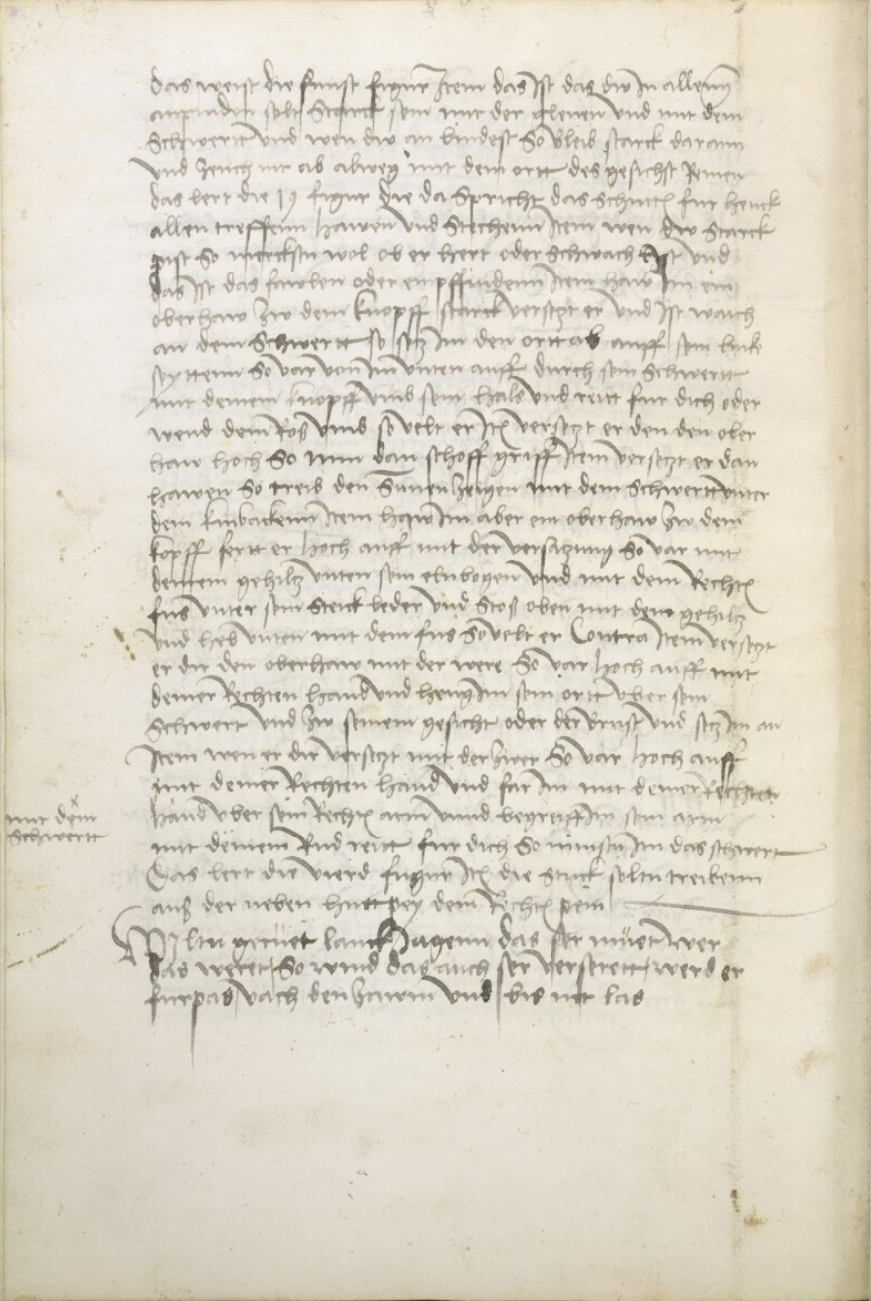 das weist die funft figur Item das Ist das dw In allenn
anpinden solt Starck sein mit der glenen vnd mit dem
Schwertt vnd wen dw an bindest So bleib starck darann
vnd zeuch nit ab alweg mit dem ortt des gesichst Remen
das lert die 19 figur die da Spricht das schuttl fur henck
allen treffenn hawen vnd Stechenn Item wen dw Starck
pist So merckstu wol ob er hert oder schwach ist vnd
das Ist das fawlen oder empffindenn Item haw Im ein
oberhaw zw dem knopff starck versetzt er vnd Ist waich
an dem Schwertt so setz Im den ortt ab auff sein lincke
seyttenn So var von Im vnten auff durch sein Schwertt
mit deinem knopff vmb sein hals vnd reitt fur dich oder
wend dein Ros vmb so velt er Itl versetzt er den den ober
haw hoch So Nim dan schoff griff Item versetzt er dan
hawen So treib den Sunen zaigen mit dem Schwertt vnter
dem kinbackenn Item haw Im aber ein oberhaw zw dem
kopff fertt er hoch auff mit der versatzung So var mit
deinem gehiltz vnten sein elnbogen vnd mit dem Rechtn
fus vnter sein Steick leder vnd Stoß oben mit dem gehiltz
vnd heb vnten mit dem fus So velt er Contra Item versetzt
er dir den oberhaw mit der were So var hoch auff mit
deiner Rechten hand vnd heng Im sein ortt vber sein
Schwert vnd zw seinem gesicht oder der brust vnd setz Im an
Item wen er dir versetzt mit der zwer So var hoch auff
mit deiner Rechten hand vnd far Im mit deiner Rechten
mit dem
Schwertt
hand vber sein Rechtn arm vnnd begreiff Im sein arm
mit deinem Rnd reitt fur dich So nimstu Im das schwert
Das lert die vierd figur Itl die stuck soltu treibenn
auß der neben hutt pey dem Rechtn pein
Wiltu gerüet lanck Jagenn das ser müet wer
das weret So wind das auch ser verserett werd er
furpas vach den zawm vnd bis nit las